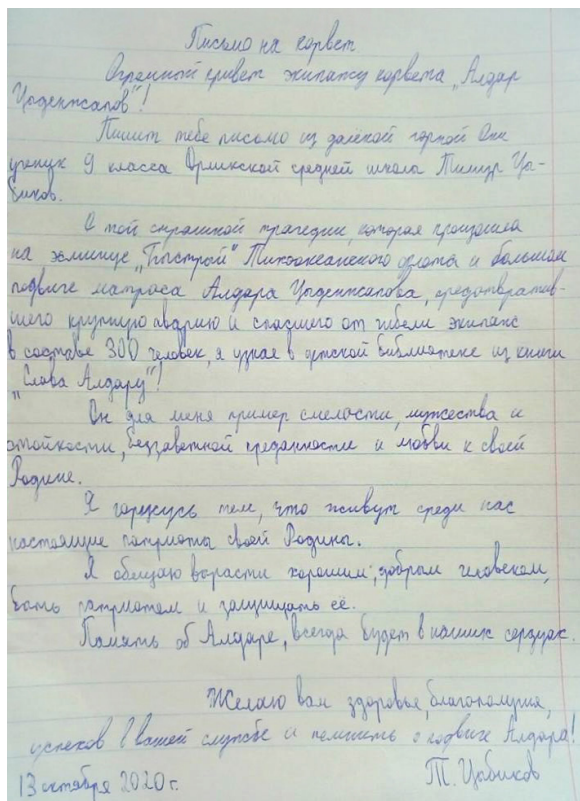 Письмо на корвет
Огромный привет экипажу корвета „Алдар
Цыденжапов"!
Пишит тебе письмо из далёкой горной Оки
ученик 9 класса Орликской средней школы Тимур Цы-
биков.
О той страшной трагедии, которая произошла
на эсминце „Быстрый" Тихоокеанского флота и большом
подвиге матроса Алдара Цыденжапова, предотвратив-
шего крупную аварию и спасшего от гибели экипаж
в составе 300 человек, я узнал в детской библиотеке из книги
„Слава Алдару"!
Он для меня пример смелости, мужества и
стойкости, беззаветной преданности и любви к своей
Родине.
Я горжусь тем, что живут среди нас
настоящие патриоты своей Родины.
Я обещаю вырасти хорошим, добрым человеком,
быть патриотом и защищать её.
Память об Алдаре, всегда будет в наших сердцах.
Желаю вам здоровье, благополучия,
успехов в вашей службе и помнить о подвиге Алдара!
13 октября 2020 г. Т. Цыбиков